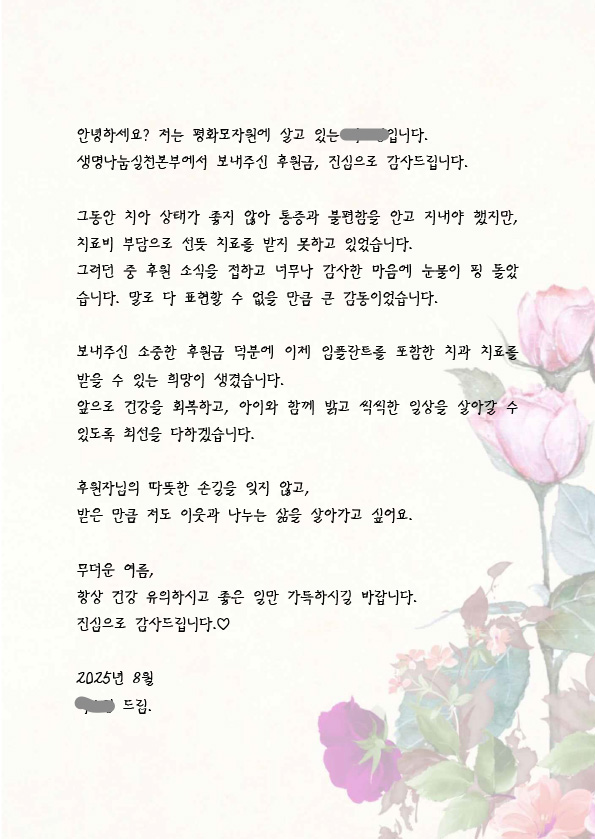 안녕하세요? 저는 평화모자원에 살고 있는 입니다.
생명나눔실천본부에서 보내주신 후원금, 진심으로 감사드립니다.
그동안 치아 상태가 좋지 않아 통증과 불편함을 안고 지내야 했지만,
치료비 부담으로 선뜻 치료를 받지 못하고 있었습니다.
그러던 중 후원 소식을 접하고 너무나 감사한 마음에 눈물이 핑 돌았
습니다. 말로 다 표현할 수 없을 만큼 큰 감동이었습니다.
보내주신 소중한 후원금 덕분에 이제 임플란트를 포함한 치과 치료를
받을 수 있는 희망이 생겼습니다.
앞으로 건강을 회복하고, 아이와 함께 밝고 씩씩한 일상을 살아갈 수
있도록 최선을 다하겠습니다.
후원자님의 따뜻한 손길을 잊지 않고,
받은 만큼 저도 이웃과 나누는 삶을 살아가고 싶어요.
무더운 여름,
항상 건강 유의하시고 좋은 일만 가득하시길 바랍니다.
진심으로 감사드립니다.♡
2025년 8월
드림.